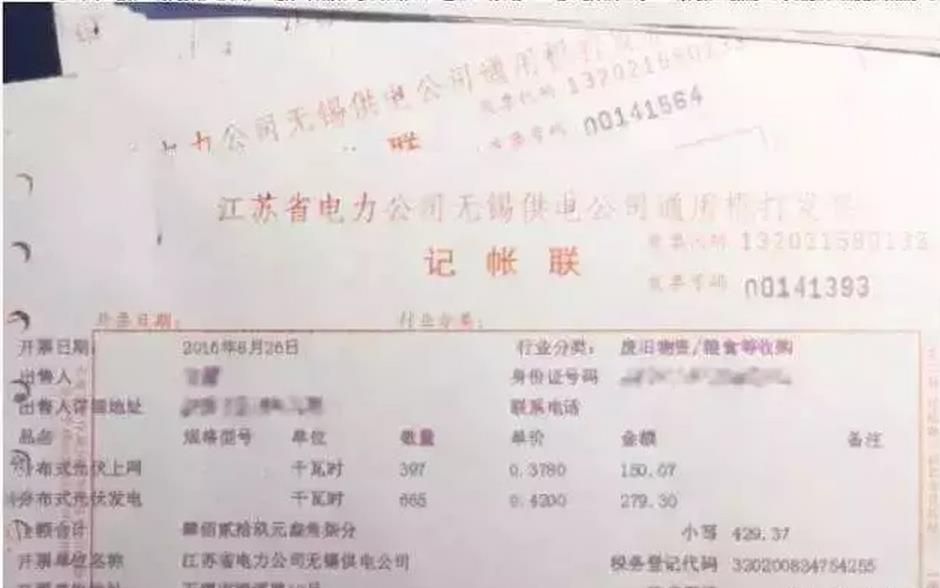 力公司无锡供电公司通用机打发
发票代码 137021580133
发票号码 00141564
联
江苏省电力公司无锡供电公司通用机打发票
记帐联
发票代码 137021580133
发票号码 00141393
开票日期： 行业分类：
开票日期 2016年8月26日 行业分类： 废旧物资/粮食等收购
出售人 身份证号码
出售人详细地址 联系电话
品名 规格型号 单位 数量 单价 金额 备注
分布式光伏上网 千瓦时 397 0.3780 150.07
分布式光伏发电 千瓦时 665 0.4200 279.30
金额合计 肆佰贰拾玖元叁角柒分 小写 429.37
开票单位名称 江苏省电力公司无锡供电公司 税务登记代码 320200834754255